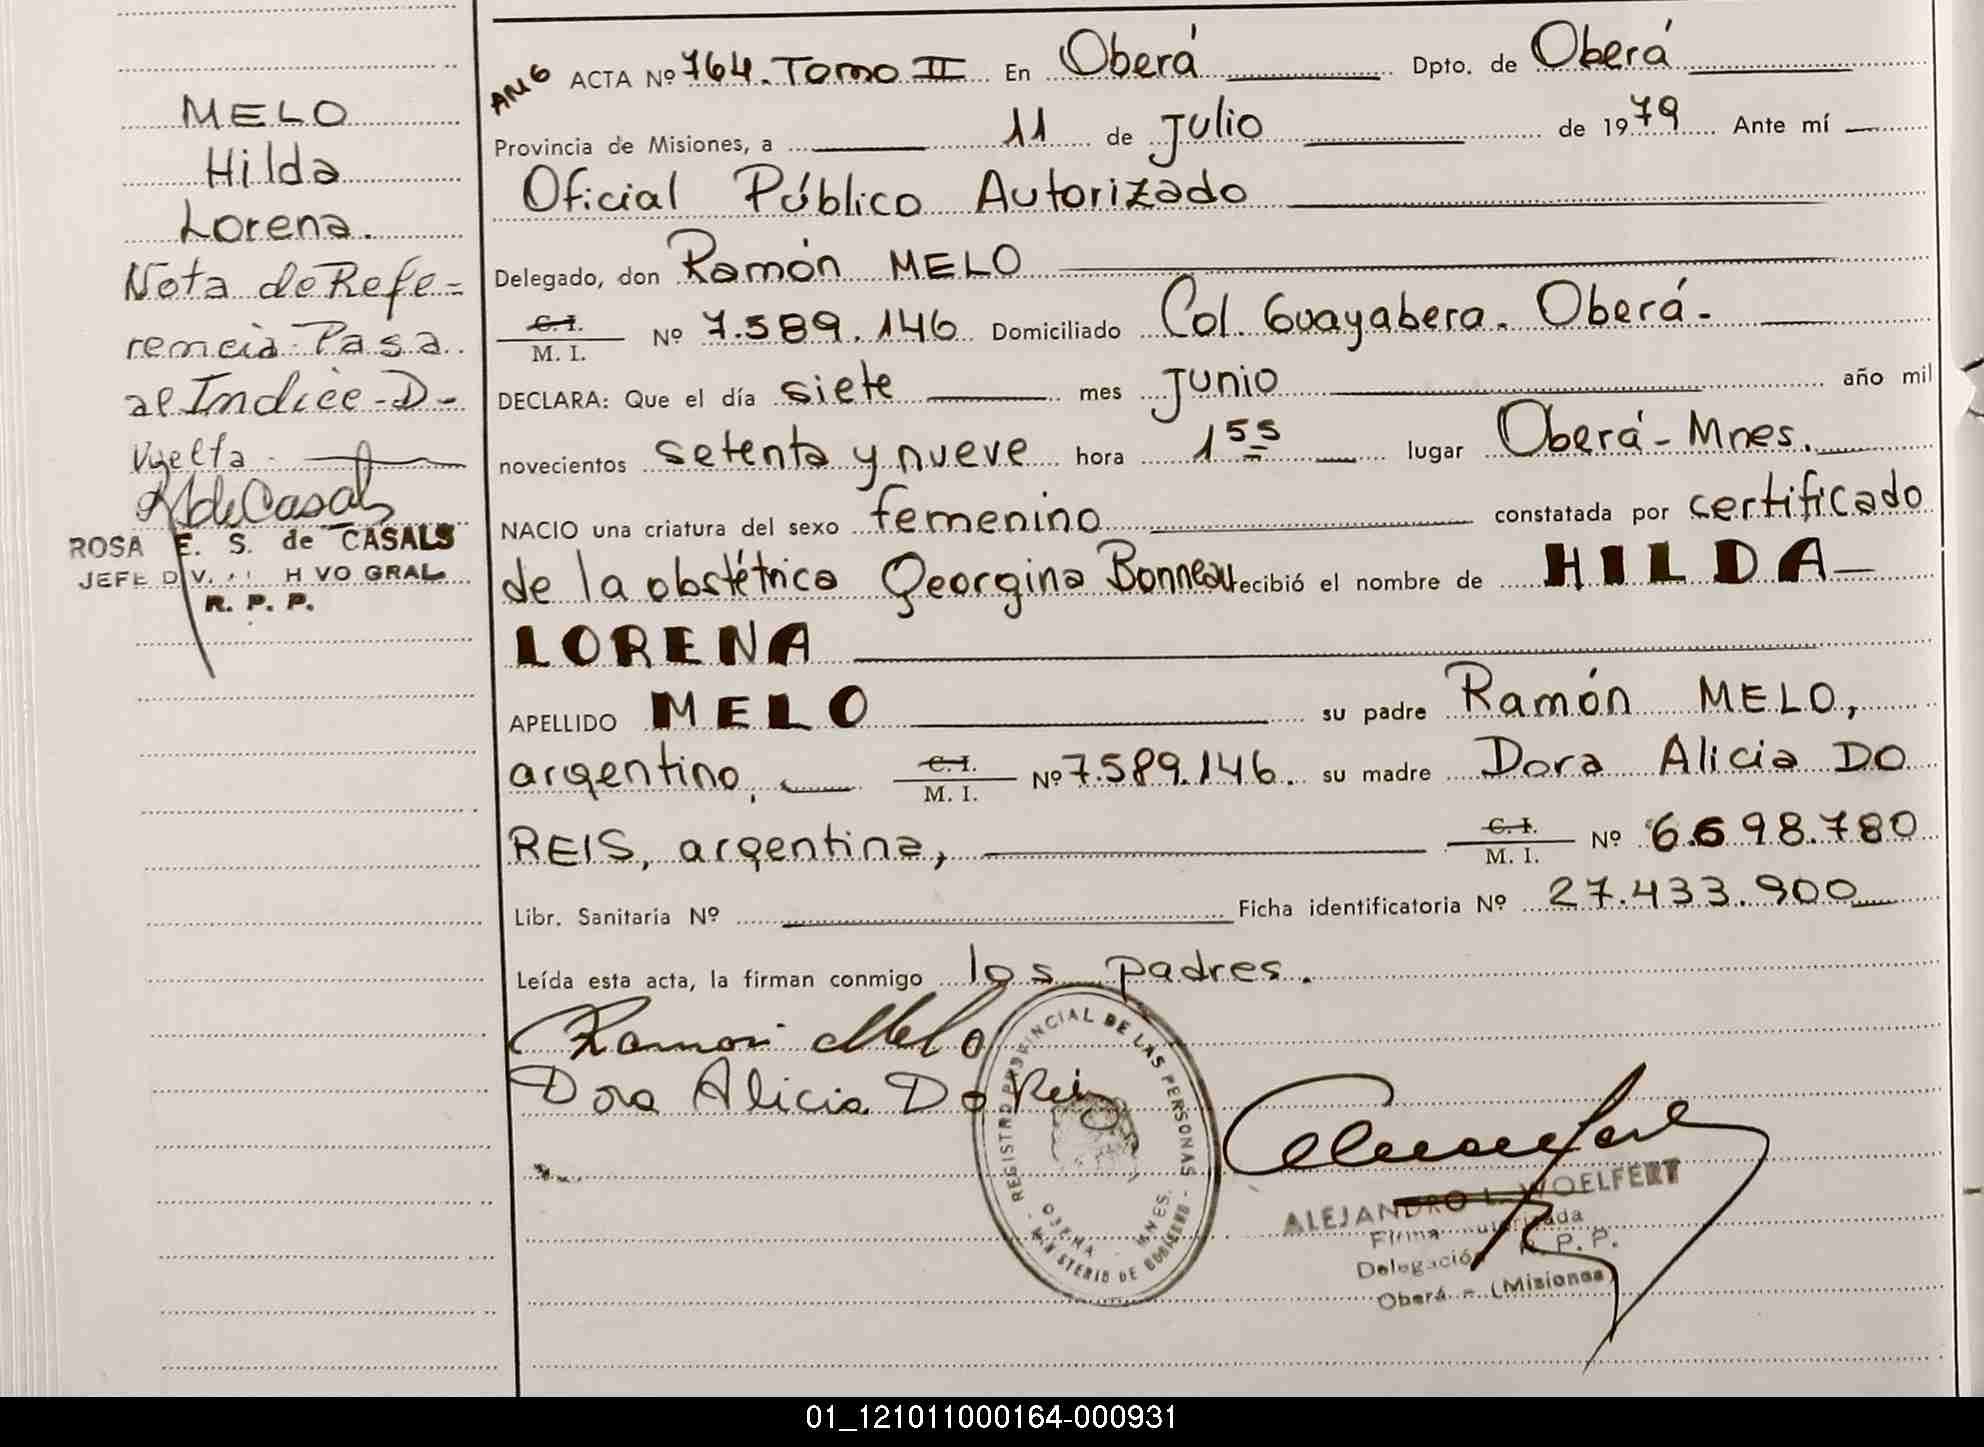 MELO
Hilda
Lorena.
Nota de Refe=
rencia Pasa
al Indice - D -
Vuelta.
RdeCasals
ROSA E. S. de CASALS
JEFE DIV. HVO GRAL.
R. P. P.
ACTA Nº 764. Tomo II En Oberá Dpto. de Oberá
Provincia de Misiones, a 11 de Julio de 1979 Ante mí
Oficial Público Autorizado
Delegado, don Ramón MELO
C. I.
M. I. Nº 7.589.146 Domiciliado Col. Guayabera. Oberá.
DECLARA: Que el día siete mes Junio año mil
novecientos setenta y nueve hora 1 55 lugar Oberá - Mnes.
NACIO una criatura del sexo femenino constatada por certificado
de la obstétrica Georgina Bonneau recibió el nombre de HILDA
LORENA
APELLIDO MELO su padre Ramón MELO,
argentino, C. I. M. I. Nº 7.589.146. su madre Dora Alicia DO
REIS, argentina, C. I. M. I. Nº 6.698.780
Libr. Sanitaria Nº Ficha identificatoria Nº 27.433.900
Leída esta acta, la firman conmigo los padres.
Ramon Melo
Dora Alicia Do Reis
REGISTRO PROVINCIAL DE LAS PERSONAS
MINISTERIO DE GOBIERNO
MNES.
ALEJANDRO L. WOELFERT
Firma Autorizada
Delegación R. P. P.
Oberá - (Misiones)
01_121011000164-000931